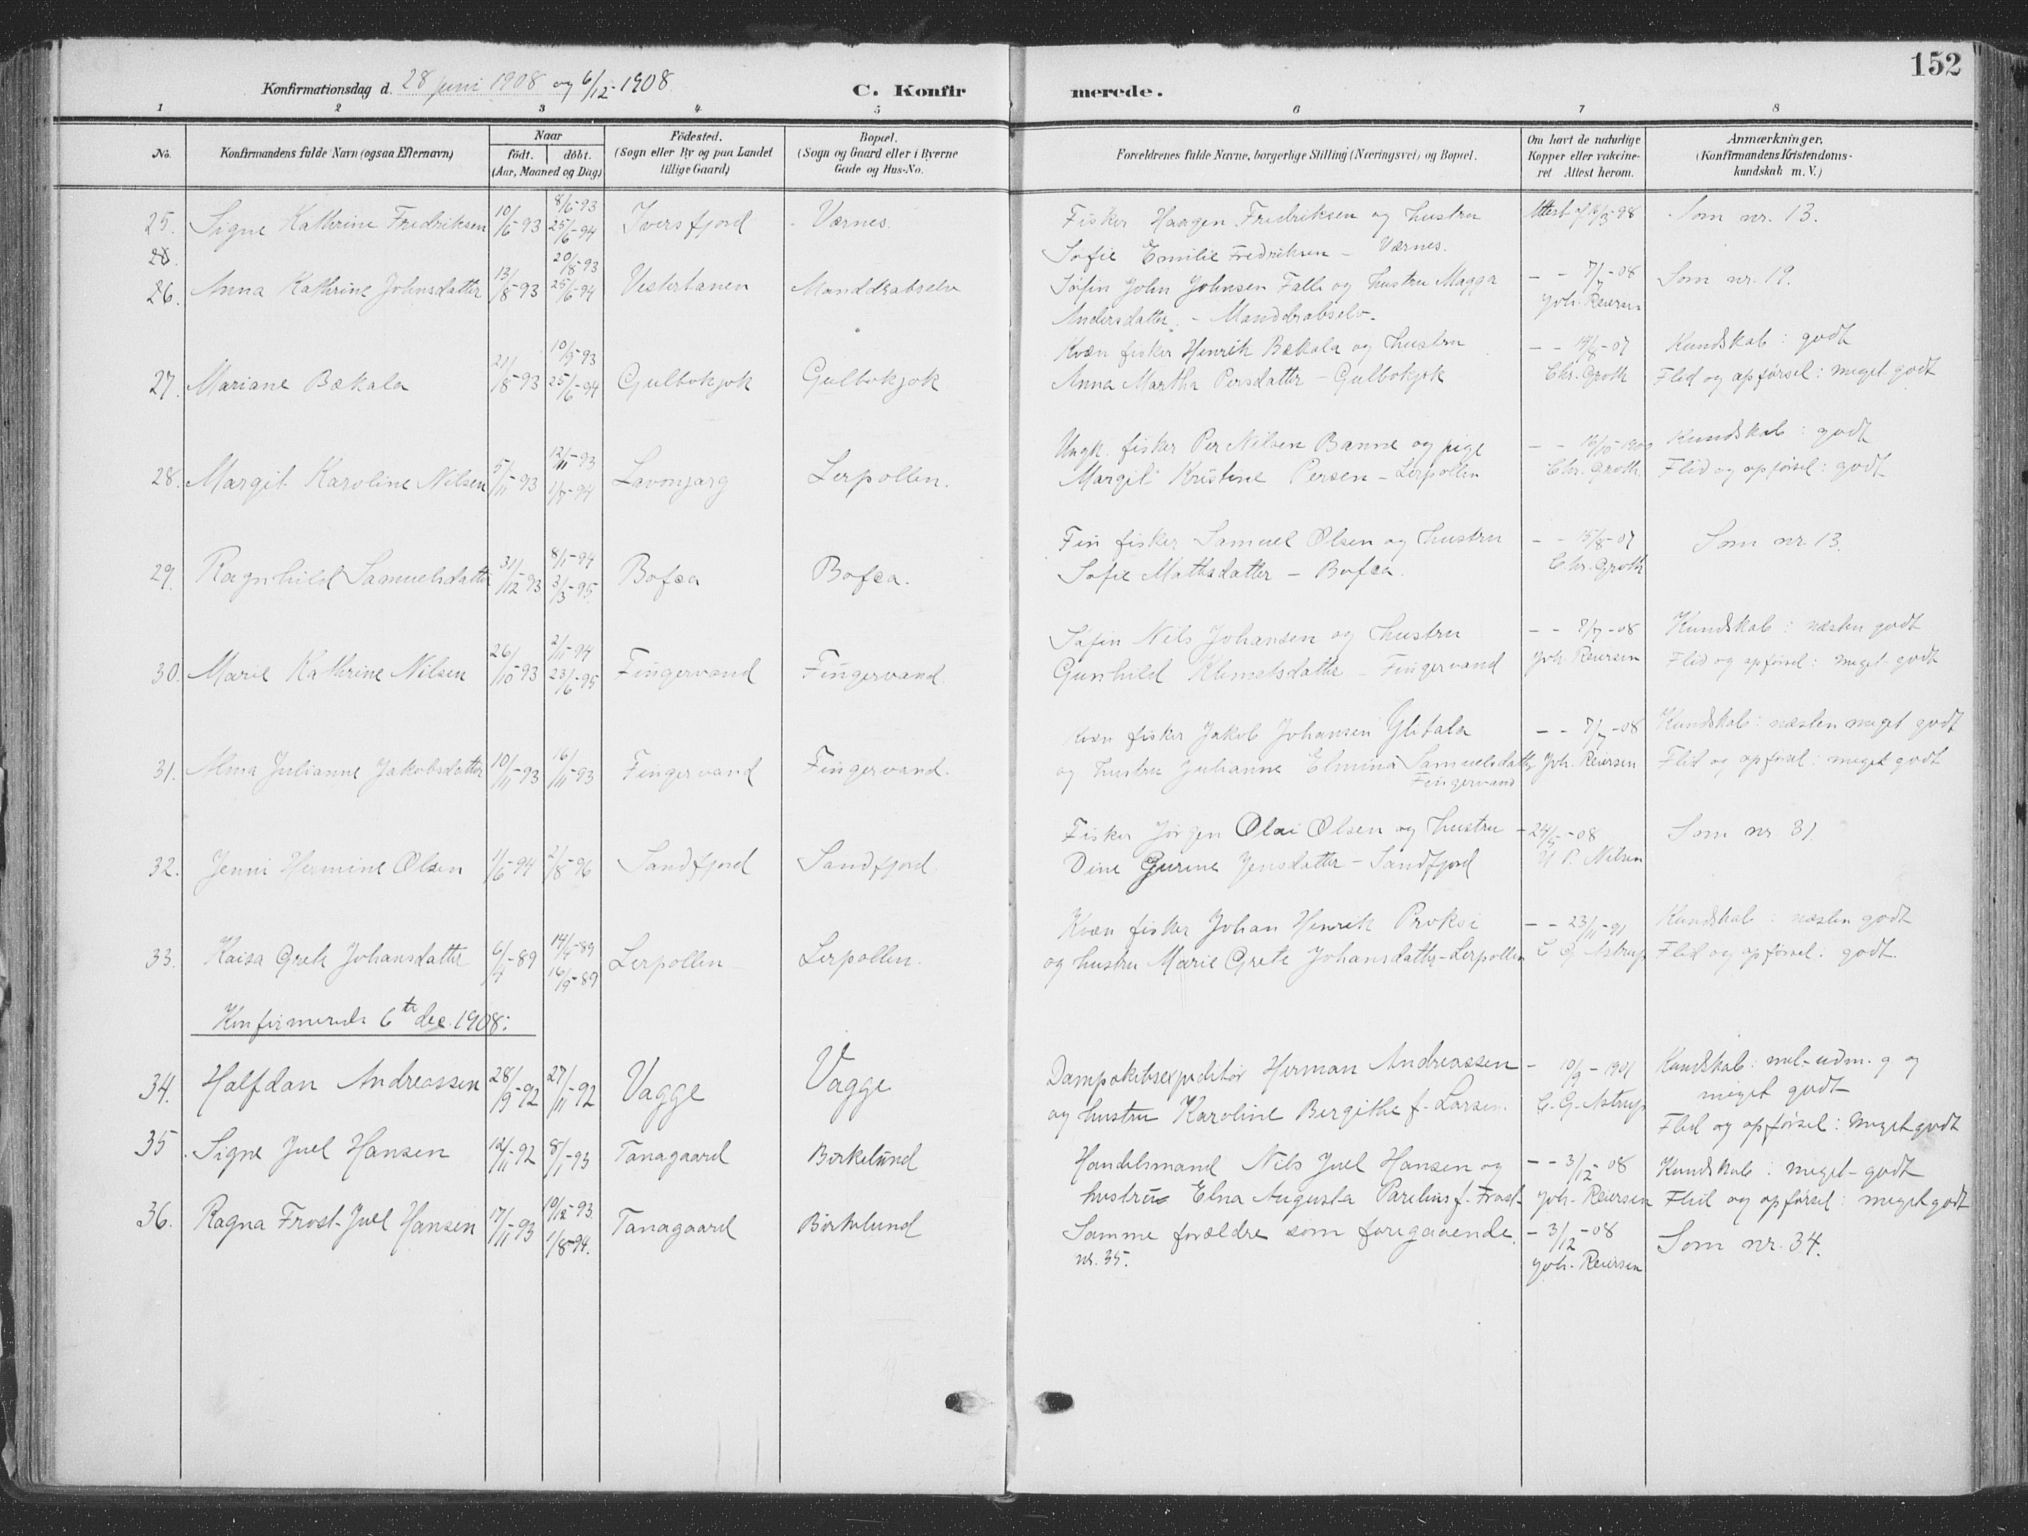 152
Konfirmationsdag d. 28 juni 1908 og 6/12-1908
C. Konfirmerede.
1 2 3 4 5 6 7 8
No.
Konfirmandens fulde Navn (ogsaa Efternavn)
Naar
födt. döbt.
(Aar, Maaned og Dag)
Födested.
(Sogn eller By og paa Landet
tillige Gaard)
Bopæl.
(Sogn og Gaard eller i Byerne
Gade og Hus-No.
Forældrenes fulde Navne, borgerlige Stilling (Næringsvei) og Bopæl.
Om havt de naturlige
Kopper eller vakcine-
ret Attest herom.
Anmærkninger,
(Konfirmandens Kristendoms-
kundskab m. V.)
25. Signe Kathrine Fredriksen 10/6-93 8/6-93 25/6-94 Iversfjord Værnes. Fisker Haagen Fredriksen og hustru Attest Som nr. 13.
Sofie Emilie Fredriksen - Værnes.
26. Anna Kathrine Johnsdatter 13/8-93 20/8-93 25/6-94 Vestertanen Manddrabselv Søfin John Johnsen Falle og hustru Magga - - 7/7-08 Som nr. 19.
Andersdatter. - Manddrabselv. Joh. Reiersen
27. Mariane Bækala 21/8-93 10/9-93 25/6-94 Gulbokjok Gulbokjok Kvæn fisker Henrik Bækala og hustru - - 14/8-07 Kundskab: godt
Anna Martha Persdatter - Gulbokjok Chr. Groth Flid og opførsel: meget godt
28. Margit Karoline Nilsen 5/11-93 12/11-93 1/8-94 Lavonjarg Lerpollen. Ungk. fisker Per Nilsen Banne og pige Kundskab: godt
Margit Kristine Persen - Lerpollen Chr. Groth. Flid og opførsel: godt
29. Ragnhild Samuelsdatter 31/12 93 8/1-94 3/3-95. Bofca Bofca. Fin fisker Samuel Olsen og hustru - - 15/8-07 Som nr 13.
Sofie Mathisdatter - Bofca. Chr. Groth
30. Marie Kathrine Nilsen 26/10 93 2/11-94 23/6-95 Fingervand Fingervand. Søfin Nils Johansen og hustru - - 7/7-08 Kundskab: næsten godt
Gunhild Klemetsdatter - Fingervand Joh. Reiersen Flid og opførsel: meget godt
31. Alma Julianne Jakobsdatter 10/11-93 16/11-93 Fingervand Fingervand. Kvæn fisker Jakob Johansen Ylitala - - 7/7-08 Kundskab: næsten meget godt
og hustru Julianne Elmina Samuelsdatter Joh. Reiersen Flid og opførsel: meget godt
Fingervand
32. Jenni Hermine Olsen 1/6-94 2/8-96 Sandfjord Sandfjord. Fisker Jørgen Olai Olsen og hustru Som nr. 31
Dine Gurine Jensdatter - Sandfjord Nilsen
33. Kaisa Grete Johansdatter 6/4-89 14/4-89 16/9-89 Lerpollen Lerpollen. Kvæn fisker Johan Henrik Proksi - - 23/11-91 Kundskab: næsten godt
og hustru Marie Grete Johansdatter - Lerpollen C. G. Astrup Flid og opførsel: godt.
Konfirmerede 6te dec. 1908:
34. Halfdan Andreassen 28/9-92 27/11-92 Vagge Vagge Dampskibsexpeditør Herman Andreassen - 10/9-1901 Kundskab: mel-udm. g og
meget godt
og hustru Karoline Birgithe f. Larsen. C. G. Astrup Flid og opførsel: meget godt
35. Signe Juel Hansen 12/11-92 8/1-93 Tanagaard Birkelund Handelsmand Nils Juel Hansen og - - 3/12-08 Kundskab: meget-godt
hustru Elna Augusta Parelius f. Frost - Joh. Reiersen Flid og opførsel: meget godt
36. Ragna Frost-Juel Hansen 17/11-93 19/12-93 1/8-94. Tanagaard Birkelund Samme forældre som foregaaende - 3/12-08 Som nr. 34.
nr. 35. Joh. Reiersen